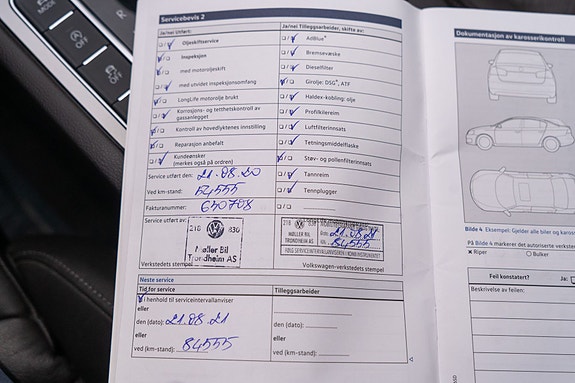 MODE
OFF
Servicebevis 2
Ja/nei Utført:
Ja/nei Tilleggsarbeider, skifte av:
Oljeskiftservice
AdBlue®
Inspeksjon
Bremsevæske
med motoroljeskift
Dieselfilter
med utvidet inspeksjonsomfang
Girolje: DSG®, ATF
LongLife motorolje brukt
Haldex-kobling: olje
Korrosjons- og tetthetskontroll av
gassanlegget
Profilkilereim
Kontroll av hovedlyktenes innstilling
Luftfilterinnsats
Reparasjon anbefalt
Tetningsmiddelflaske
Kundeønsker
(merkes også på ordren)
Støv- og pollenfilterinnsats
Service utført den: 21.08.20
Tannreim
Ved km-stand: 54555
Tennplugger
Fakturanummer: 650708
Service utført av:
218 830
Møller Bil
Trondheim AS
Verkstedets stempel
218 830
MØLLER BIL
TRONDHEIM AS
21.08.21
84555
Volkswagen-verkstedets stempel
Neste service
Tid for service
Tilleggsarbeider
I henhold til serviceintervallanviser
eller
eller
den (dato): 21.08.21
den (dato):
eller
eller
ved (km-stand): 84555
ved (km-stand):
Dokumentasjon av karosserikontroll
Bilde 4 Eksempel: Gjelder alle biler og karosse
På Bilde 4 markerer det autoriserte verksted
Riper
Bulker
Feil konstatert?
Ja:
Beskrivelse av feilen: